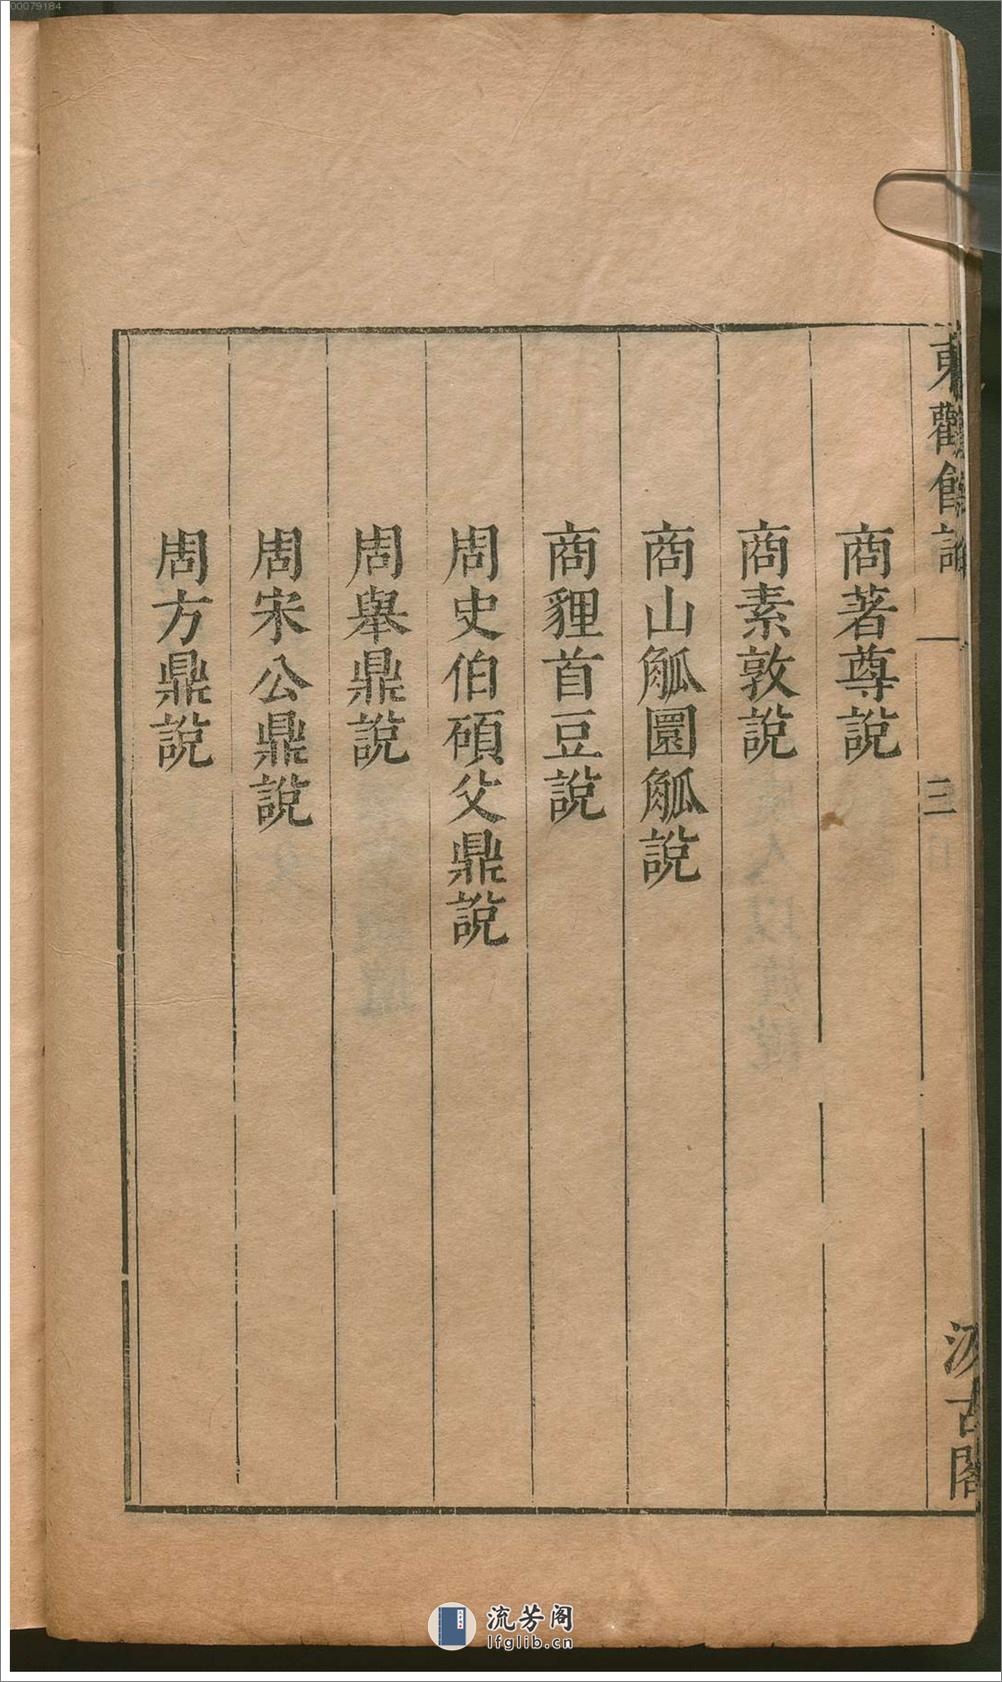 00079184
東觀餘論
一
三
汲古閣
商著尊說
商素敦說
商山觚圜觚說
商貍首豆說
周史伯碩父鼎說
周舉鼎說
周宋公鼎說
周方鼎說
流芳阁
lfglib.cn